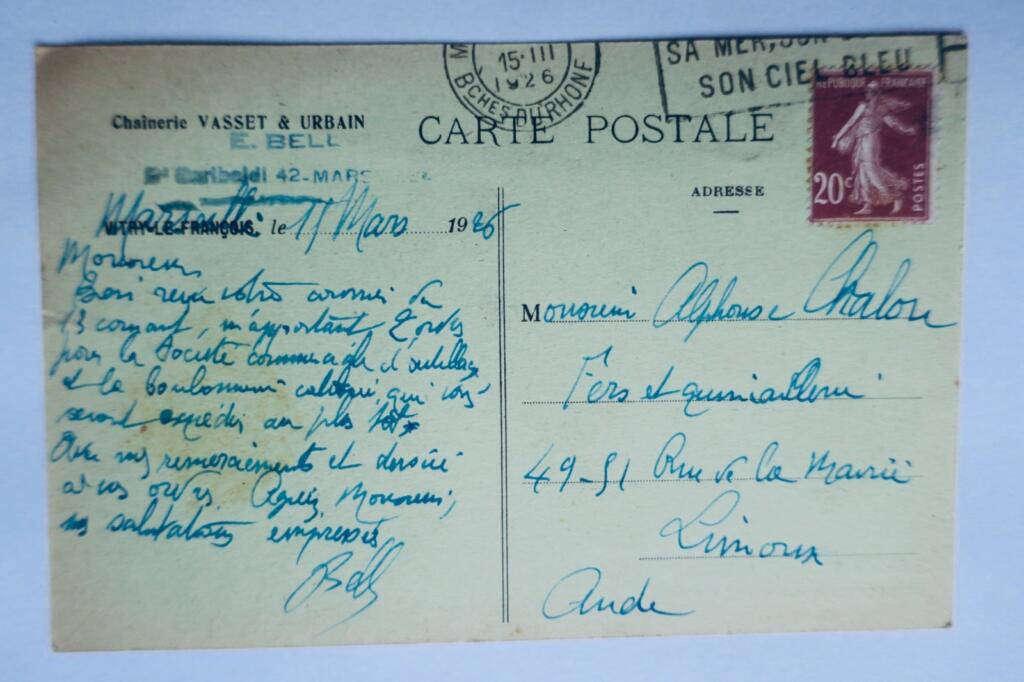 15·III
1926
BCHES DU RHONE
SA MER, SON
SON CIEL BLEU
REPUBLIQUE FRANÇAISE
20c
POSTES
Chaînerie VASSET & URBAIN
E. BELL
Bd Garibaldi 42-MARS
CARTE POSTALE
ADRESSE
VITRY-LE-FRANÇOIS, le Mars 1926
Monsieur
Bien reçu votre du
13 courant, m'apportant 2 ordres
pour la Société commerciale d'outillage
et la boulonnerie qui vous
seront expédiés au plus tôt
Avec mes remerciements et dévoué
à vos ordres. Agréez Monsieur,
mes salutations empressées
Bell
Monsieur Alphonse Chalon
Fers et quincaillerie
49-51 Rue de la Mairie
Limoux
Aude